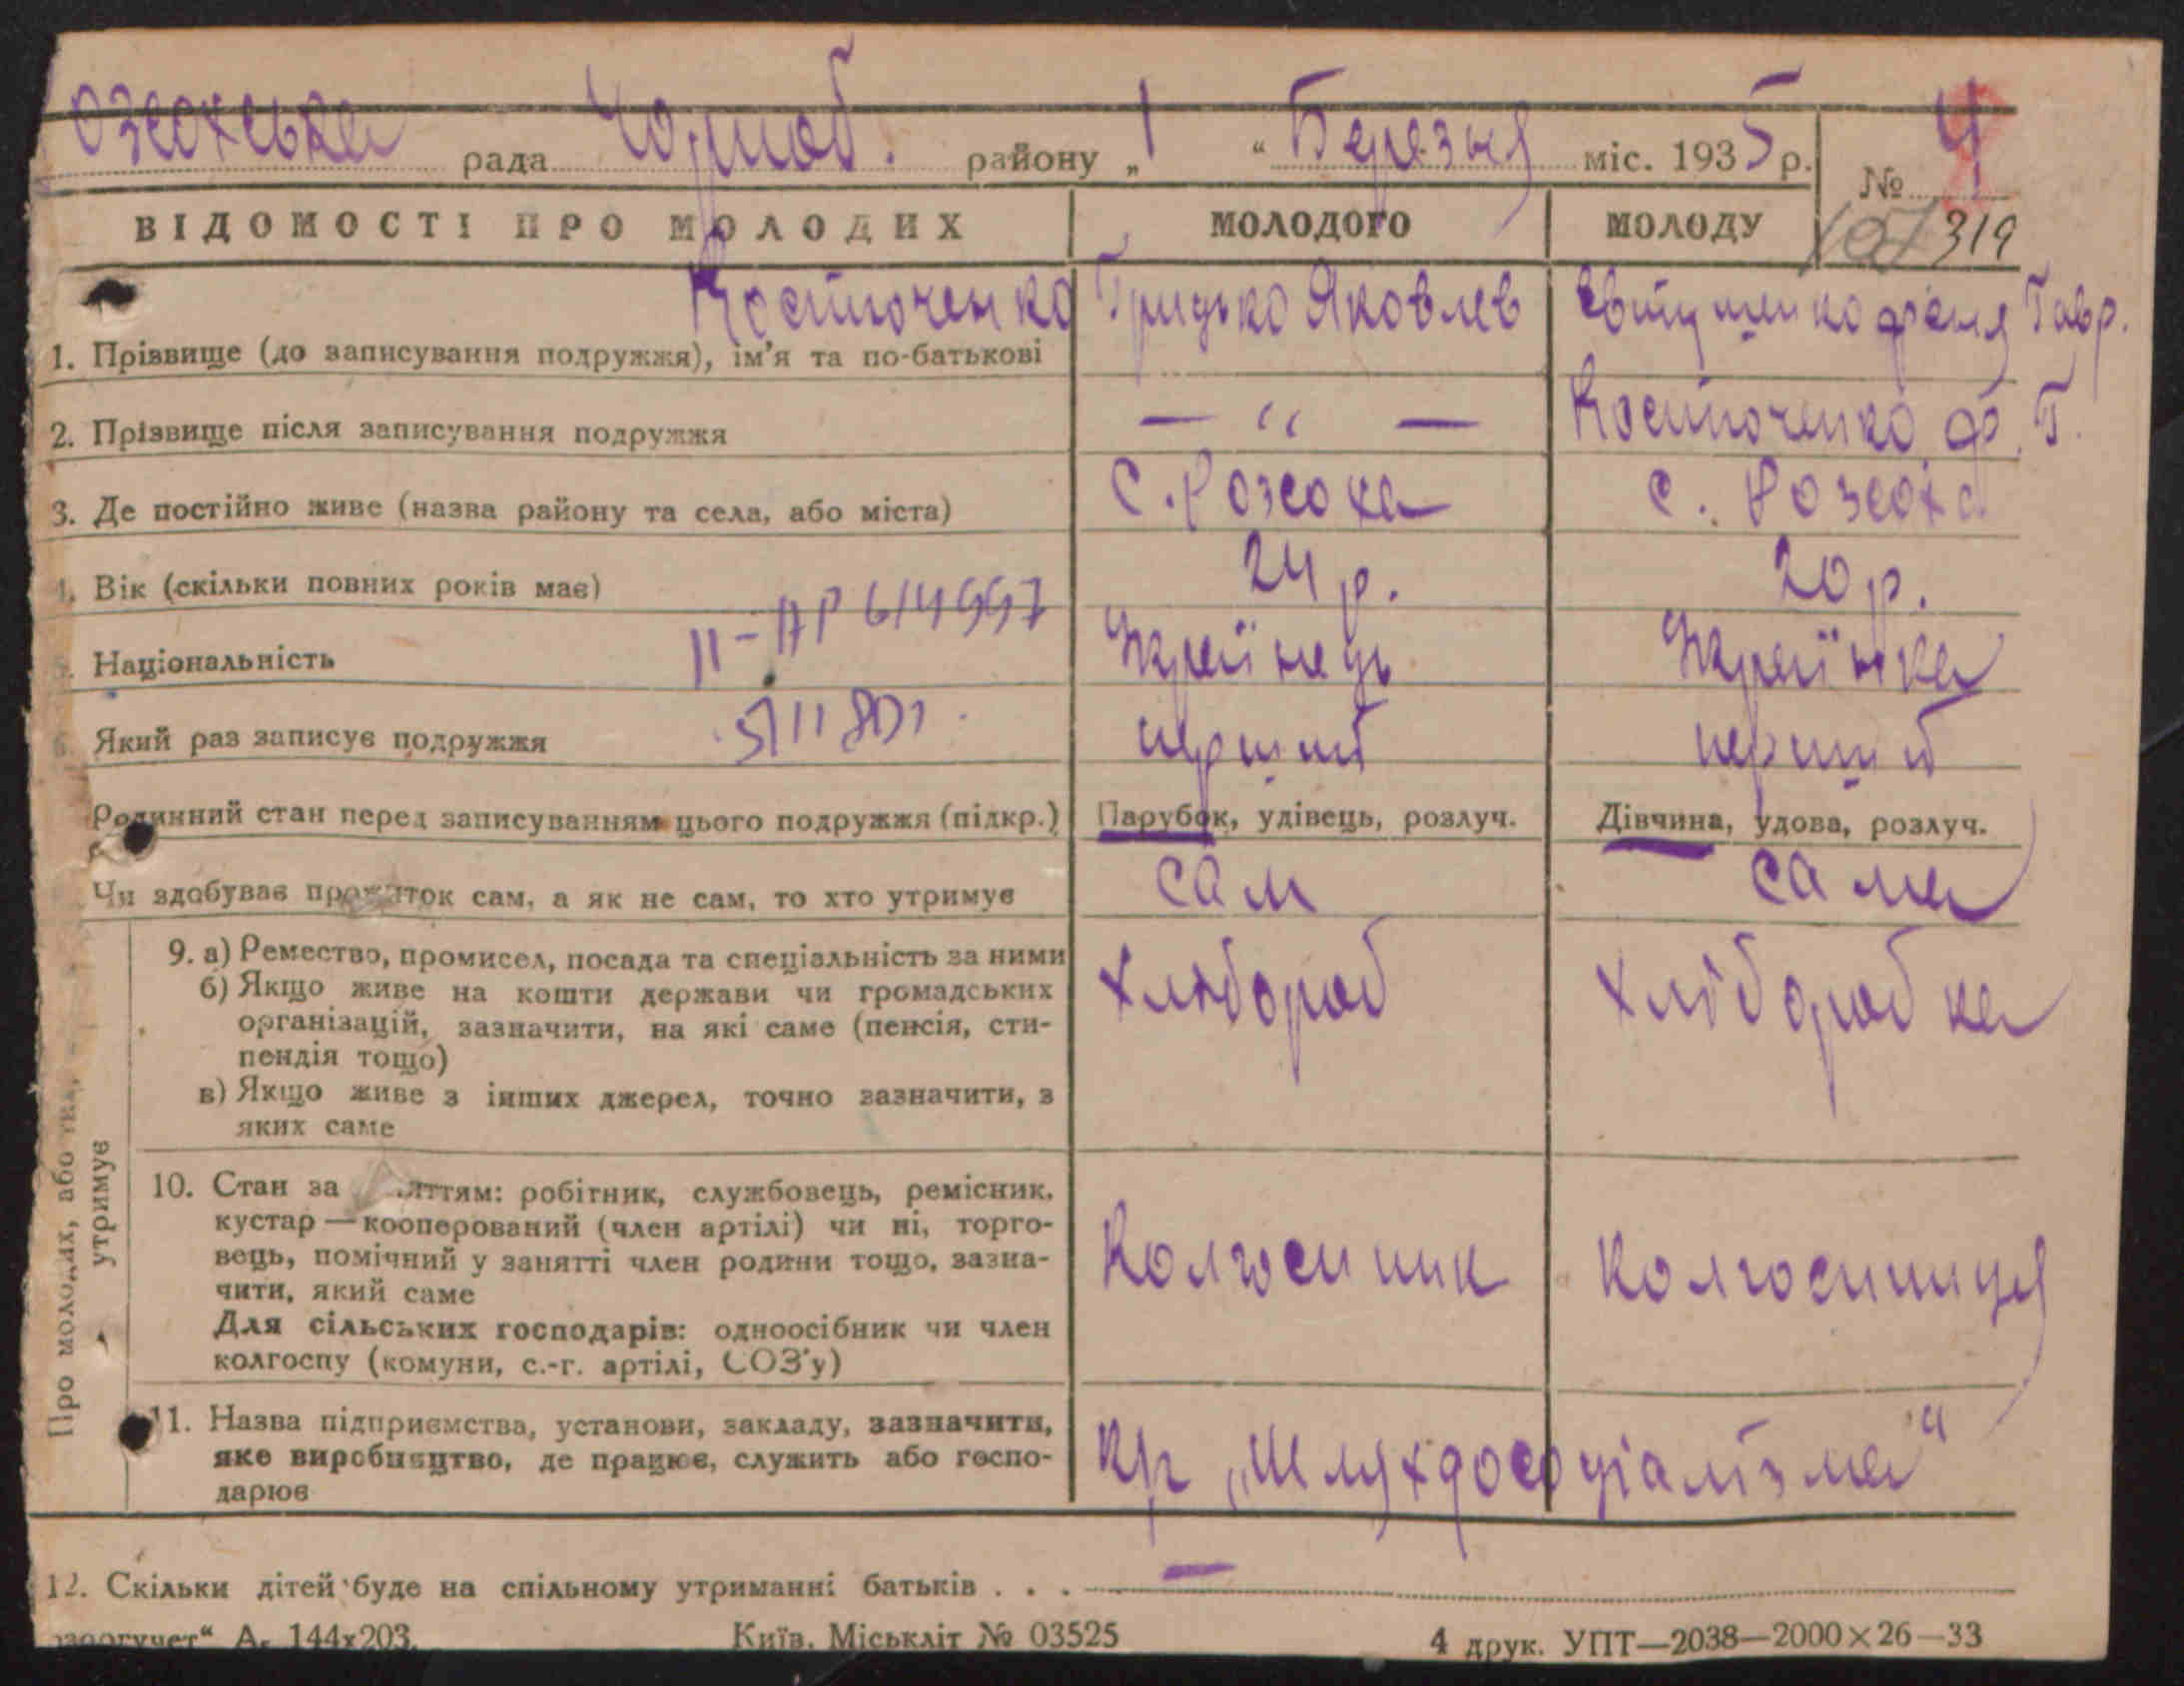 Озсохська рада Чорноб. району „1“ Березня міс. 1935 р. № 4
ВІДОМОСТІ ПРО МОЛОДИХ МОЛОДОГО МОЛОДУ 107 319
1. Прізвище (до записування подружжя), ім'я та по-батькові Костюченко Грицько Яковлев Євтушенко Феня Гавр.
2. Прізвище після записування подружжя — " — Костюченко Ф. Г.
3. Де постійно живе (назва району та села, або міста) С. Розсоха С. Розсоха
4. Вік (скільки повних років має) 24 р. 20 р.
Національність II-АР 614997 Українець Українка
Який раз записує подружжя перший перший
Родинний стан перед записуванням цього подружжя (підкр.) Парубок, удівець, розлуч. Дівчина, удова, розлуч.
Чи здобуває прожиток сам, а як не сам, то хто утримує сам сама
Про молодих, або тих, утримує
9. а) Ремество, промисел, посада та спеціальність за ними Хлібороб Хліборобка
б) Якщо живе на кошти держави чи громадських
організацій, зазначити, на які саме (пенсія, сти-
пендія тощо)
в) Якщо живе з інших джерел, точно зазначити, з
яких саме
10. Стан за ..яттям: робітник, службовець, ремісник,
кустар — кооперований (член артілі) чи ні, торго-
вець, помічний у занятті член родини тощо, зазна- Колгоспник Колгоспниця
чити, який саме
Для сільських господарів: одноосібник чи член
колгоспу (комуни, с.-г. артілі, СОЗ'у)
11. Назва підприємства, установи, закладу, зазначити,
яке виробництво, де працює, служить або госпо- К/г „Шлях до соціалізма"
дарює
12. Скільки дітей буде на спільному утриманні батьків . . . —
А. 144х203. Київ. Міськліт № 03525 4 друк. УПТ—2038—2000×26—33